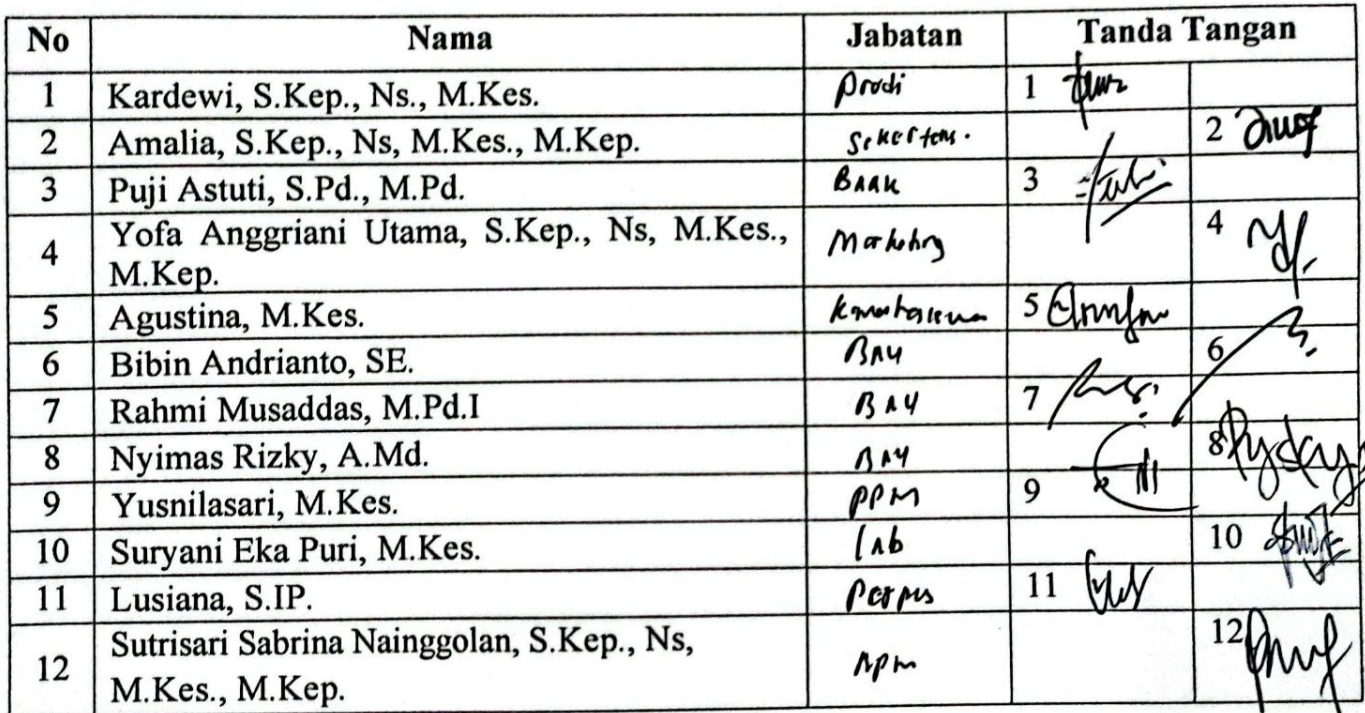 No Nama Jabatan Tanda Tangan
1 Kardewi, S.Kep., Ns., M.Kes. Prodi 1
2 Amalia, S.Kep., Ns, M.Kes., M.Kep. 2
3 Puji Astuti, S.Pd., M.Pd. BAAK 3
4 Yofa Anggriani Utama, S.Kep., Ns, M.Kes., Marketing 4
M.Kep.
5 Agustina, M.Kes. 5
6 Bibin Andrianto, SE. BAU 6
7 Rahmi Musaddas, M.Pd.I BAU 7
8 Nyimas Rizky, A.Md. BAU 8
9 Yusnilasari, M.Kes. PPM 9
10 Suryani Eka Puri, M.Kes. Lab 10
11 Lusiana, S.IP. Perpus 11
12 Sutrisari Sabrina Nainggolan, S.Kep., Ns, 12
M.Kes., M.Kep.